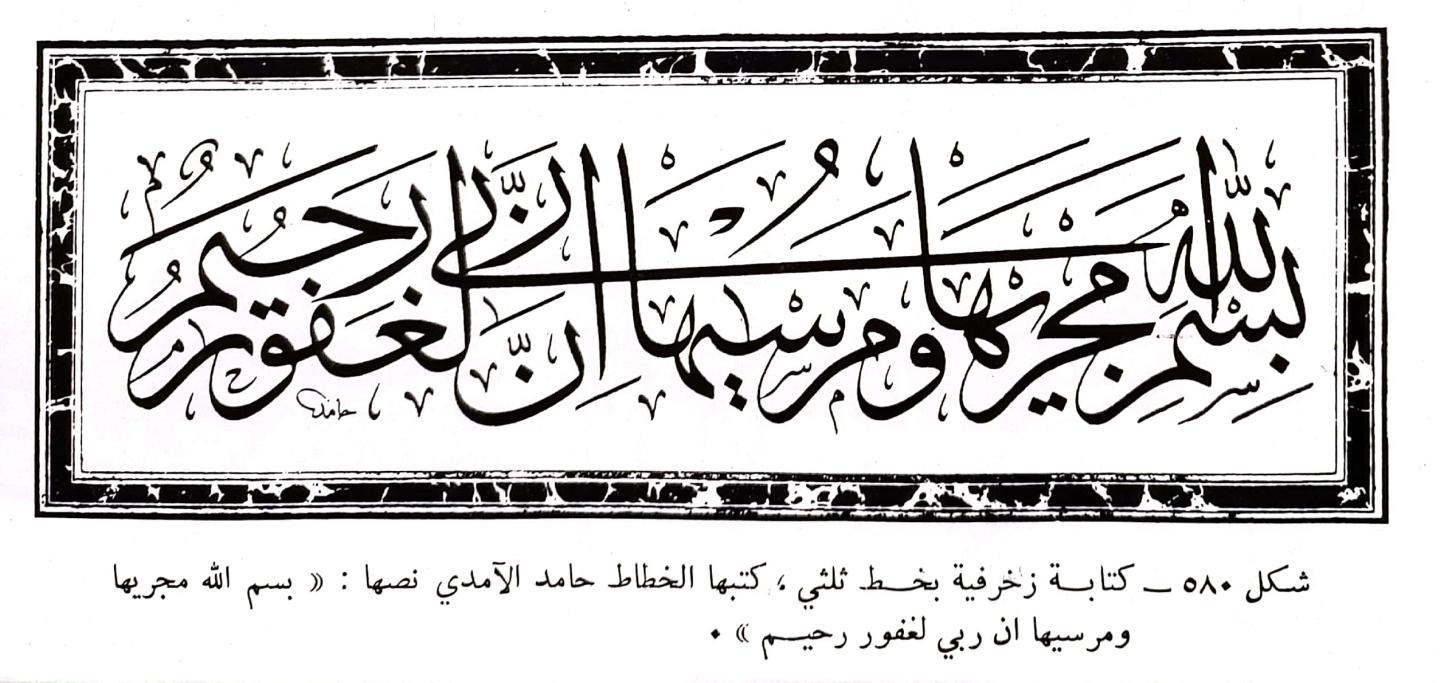 بِسْمِ اللّٰهِ مَجْرٰيهَا وَمُرْسٰيهَا اِنَّ رَبِّى لَغَفُورٌ رَحِيمٌ
حامد
شكل ٥٨٠ ــ كتابــة زخرفية بخــط ثلثي ، كتبها الخطاط حامد الآمدي نصها : « بسم الله مجريها
ومرسيها ان ربي لغفور رحيــم » ٠